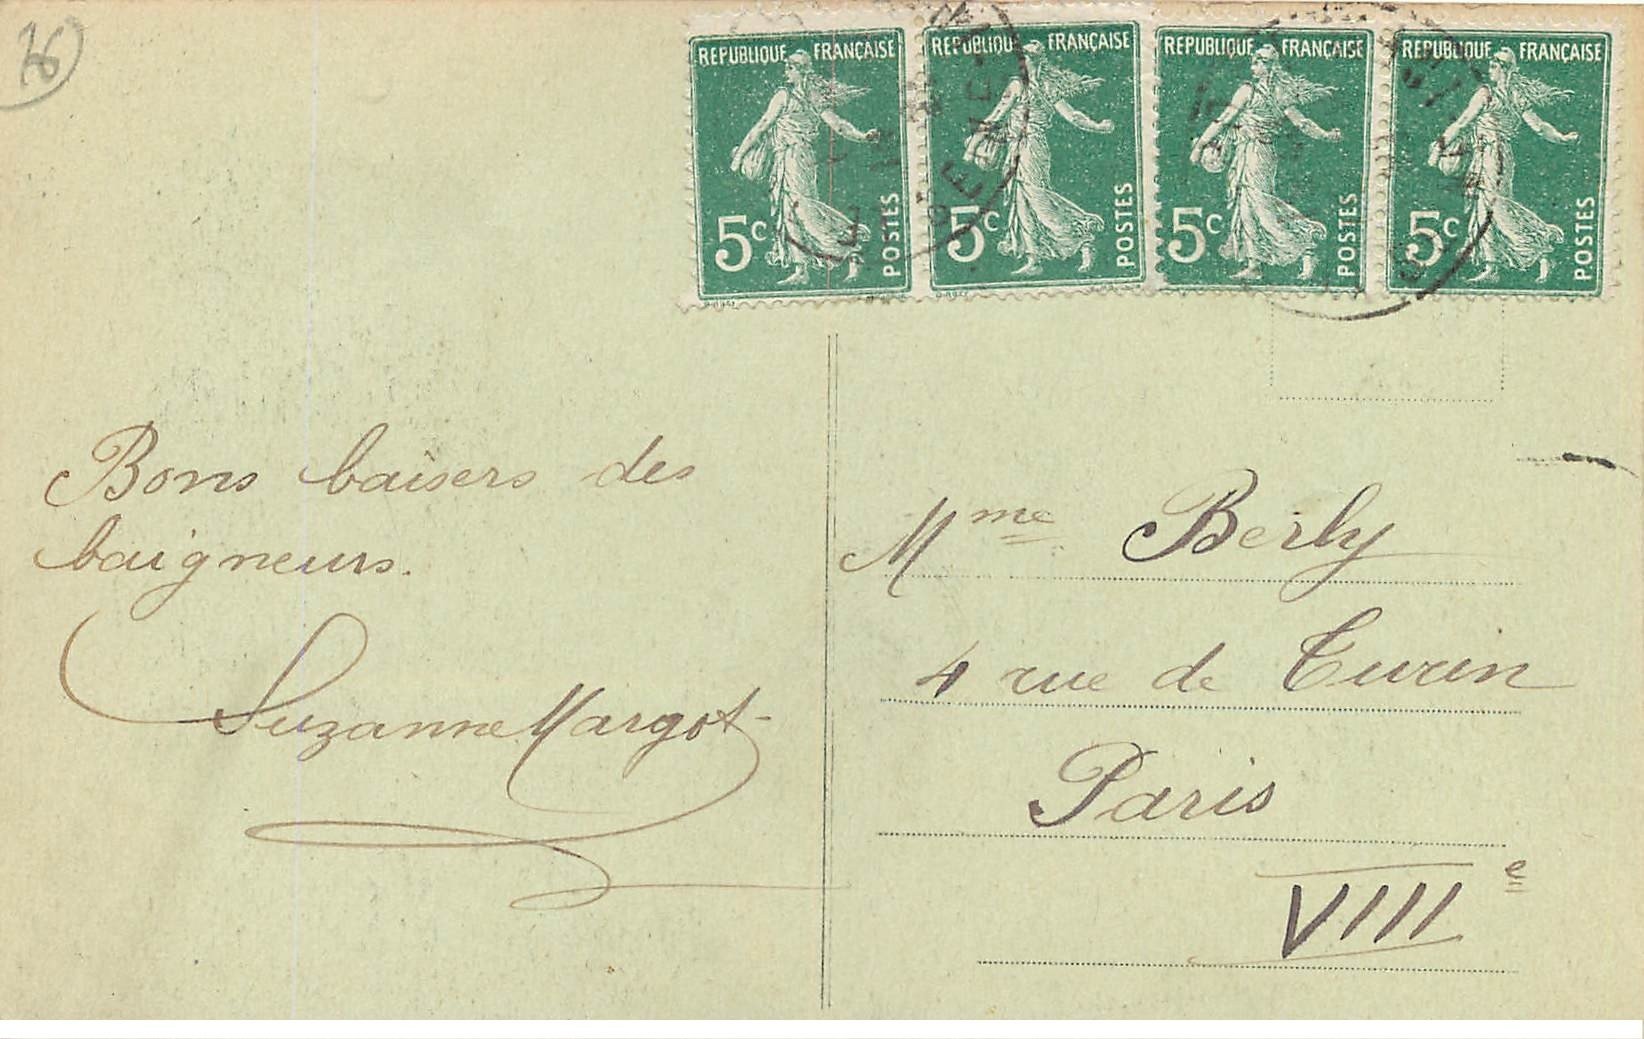 76
REPUBLIQUE FRANÇAISE
5c POSTES
REPUBLIQUE FRANÇAISE
5c POSTES
REPUBLIQUE FRANÇAISE
5c POSTES
REPUBLIQUE FRANÇAISE
5c POSTES
Bons baisers des
baigneurs.
Suzanne Margot
Mme Berly
4 rue de Turin
Paris
VIIIe